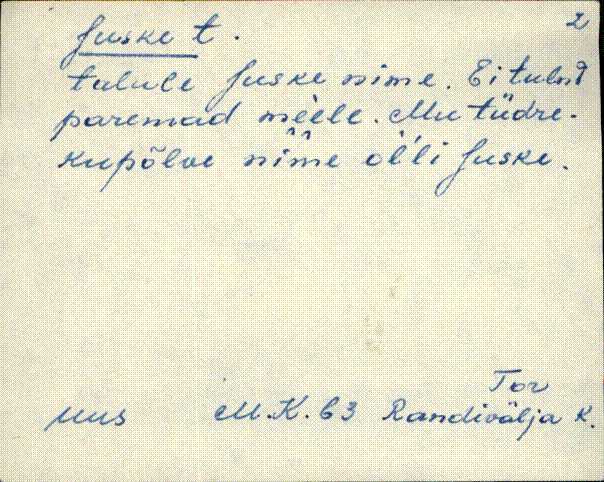 2
Juske t.
talule Juske nime. Ei tulnd
paremad mèele. Mu tüdre-
kupõlve nime oĺli Juske.
Tor
Uus M.K. 63 Randivälja k.